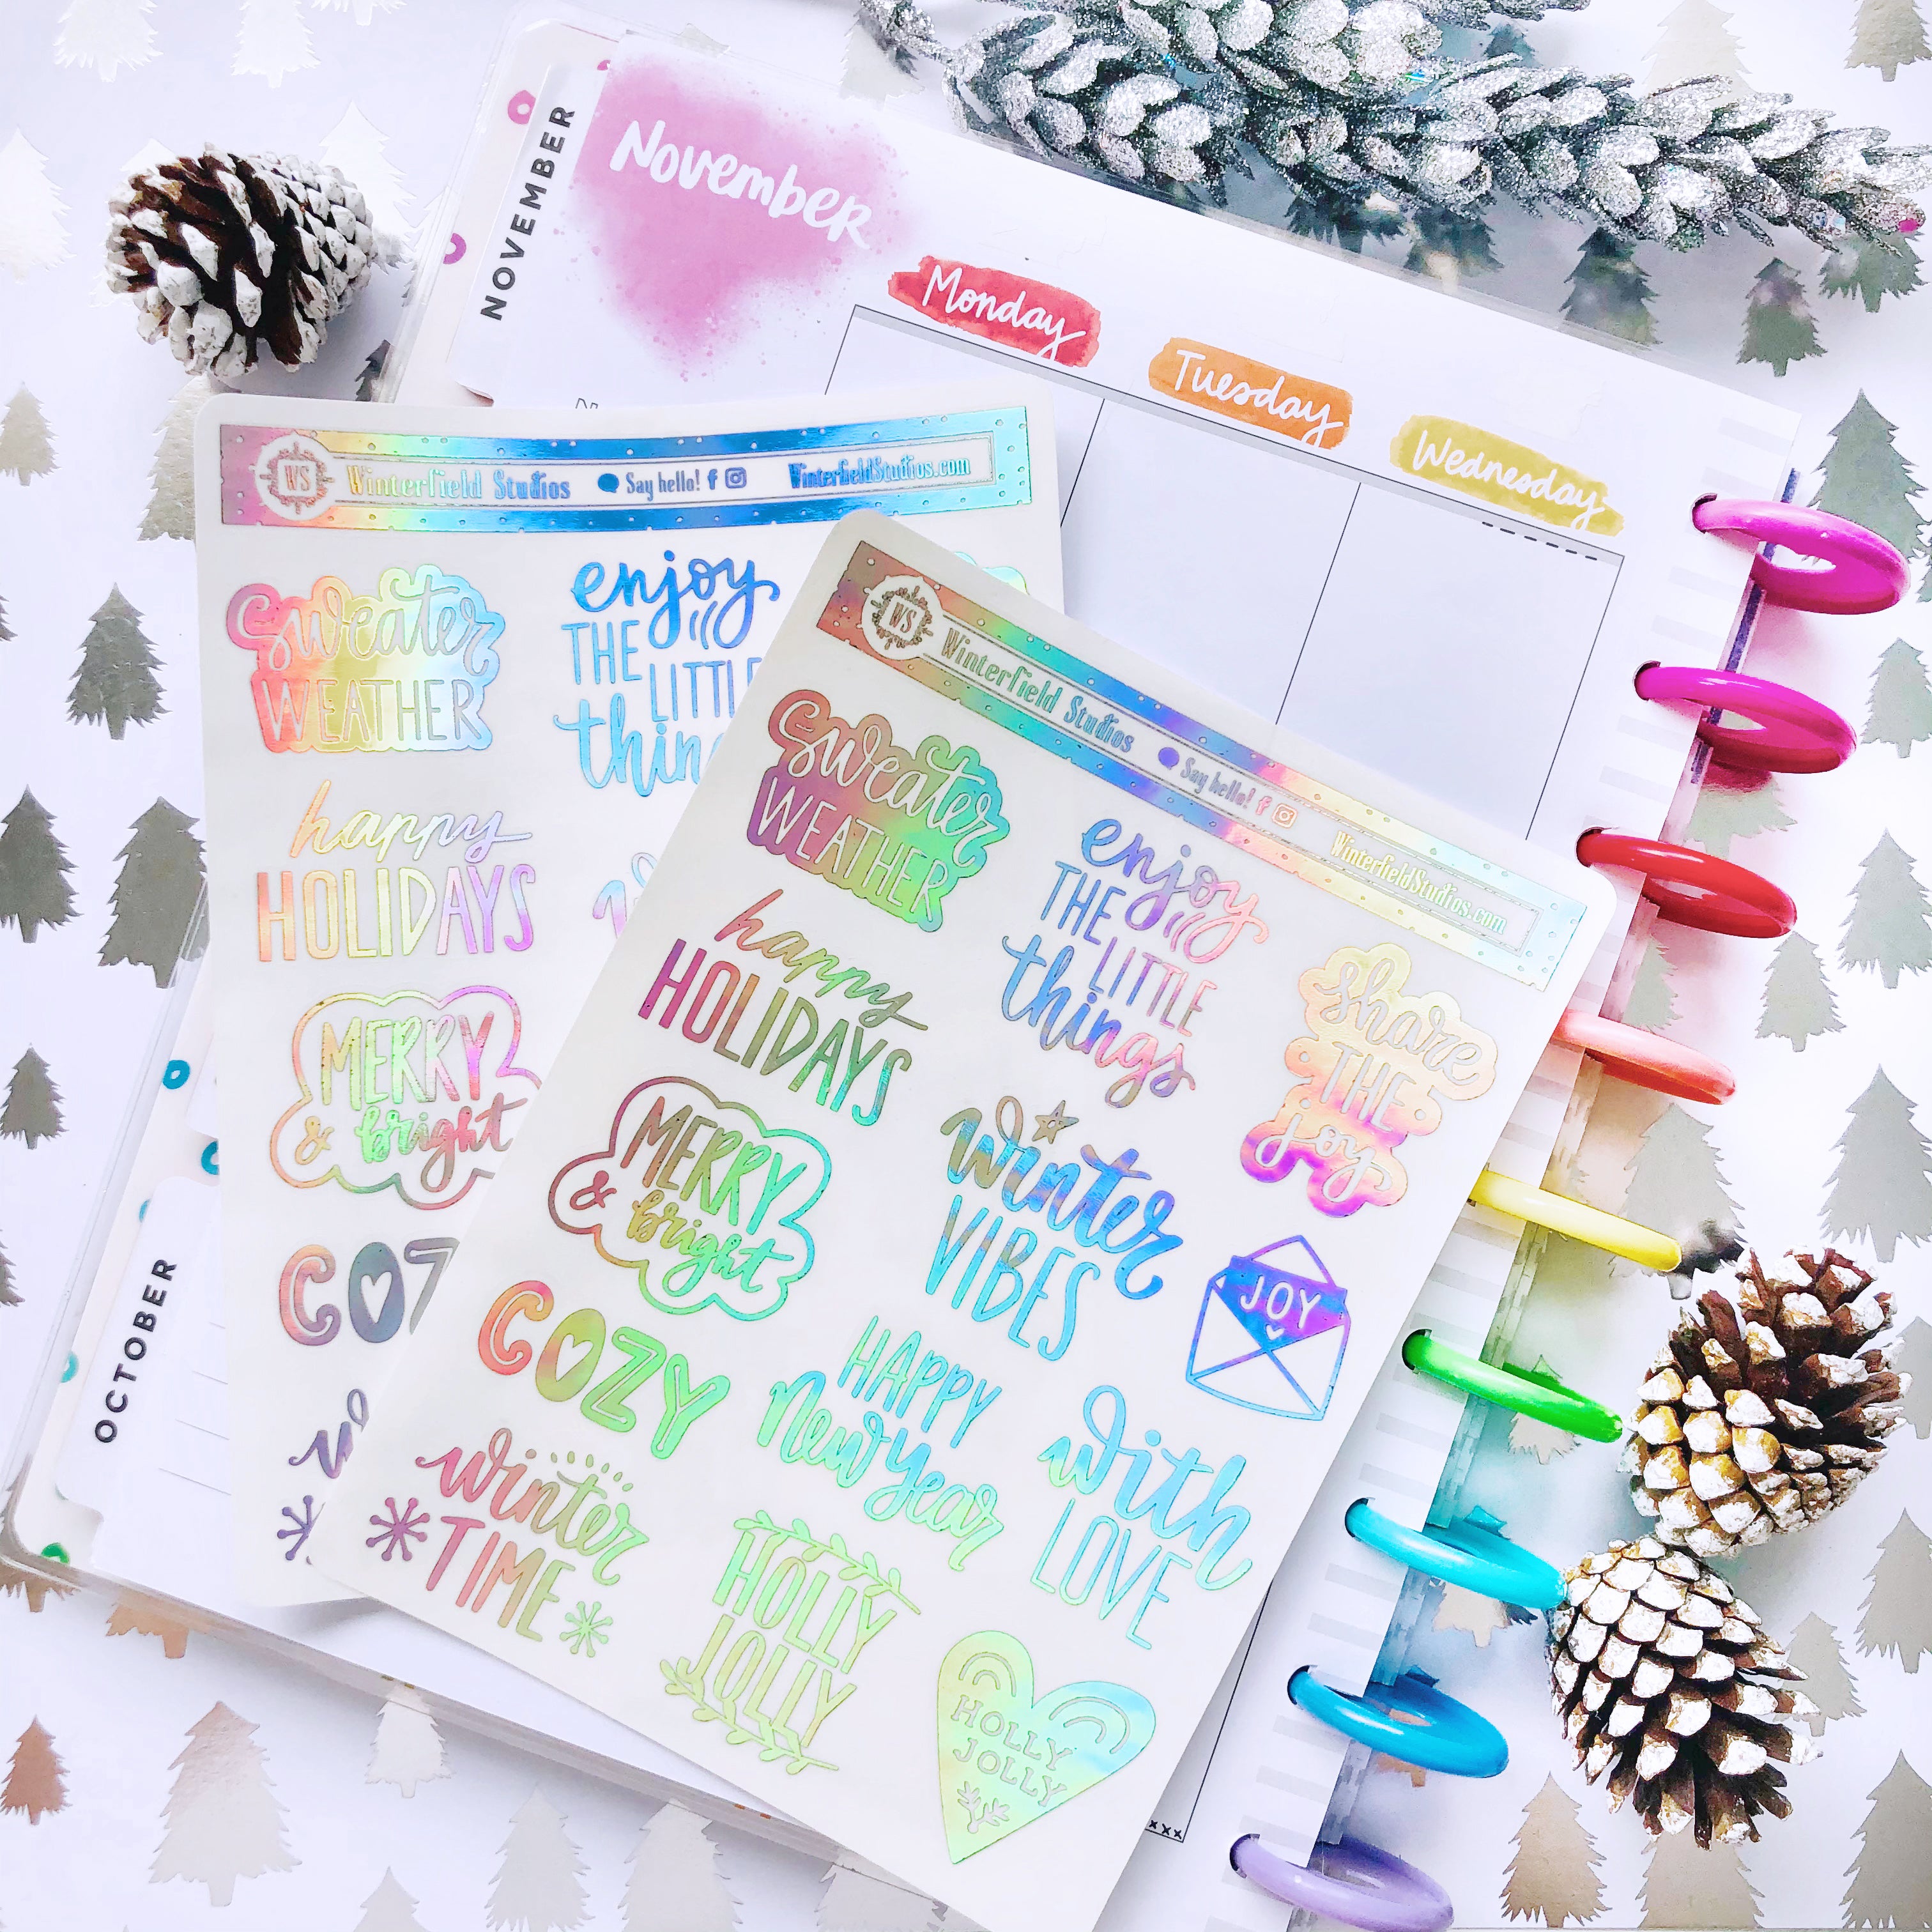 November
NOVEMBER
Monday
Tuesday
Wednesday
OCTOBER
WS
Winterfield Studios
Say hello!
WinterfieldStudios.com
sweater
WEATHER
enjoy
THE
LITTLE
happy
HOLIDAYS
MERRY
& bright
WS
Winterfield Studios
Say hello!
WinterfieldStudios.com
sweater
WEATHER
enjoy
THE
LITTLE
things
share
THE
joy
happy
HOLIDAYS
MERRY
& bright
winter
VIBES
JOY
COZY
HAPPY
New year
with
LOVE
winter
TIME
HOLLY
JOLLY
HOLLY
JOLLY
xxx